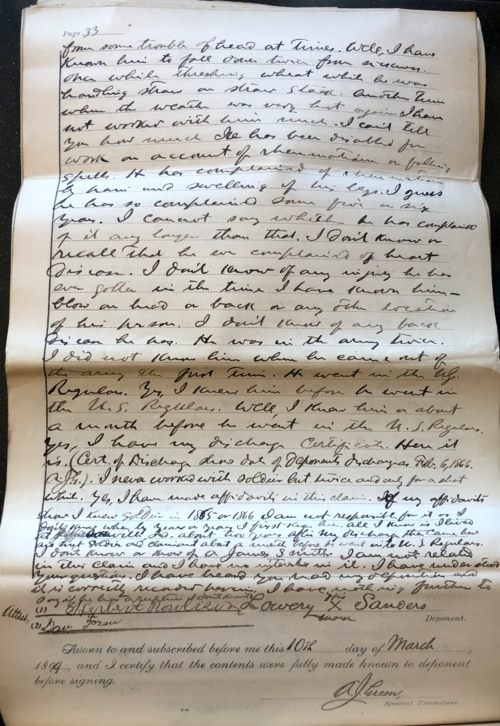 Page 33
from some trouble of head at times. Well, I have
known him to fall down twice from sickness.
once while threshing wheat while he was
handling straw on straw stack. Another time
when the weather was very hot again. I have
not worked with him much. I can't tell
you how much He has been disabled for
work on account of rheumatism or falling
spells. He has complained of rheumatism
by pain and swelling of his legs. I guess
he has so complained some five or six
years. I cannot say whether he has complained
of it any longer than that. I don't know or
recall that he ever complained of heart
disease. I don't know of any injury he has
ever gotten in the time I have known him—
blow on head or back or any other location
of his person. I don't know of any back
disease he has. He was in the army twice.
I did not know him when he came out of
the army the first time. He went in the U.S.
Regulars. Yes, I knew him before he went in
the U.S. Regulars. Well, I knew him about
a month before he went in the U.S. Regulars.
Yes, I have my discharge certificate. Here it
is. (Cert. of Discharge shows date of Deponents discharge as Feb. 6, 1866.
A.J.G.). I never worked with soldier but twice and only for a short
while. Yes, I have made affidavits in this claim. If my affidavits
show I knew soldier in 1865 or 1866 I am not responsible for it as I
don't know what by years or year I first knew him, all I know is I lived
at about two years after my discharge then came here
I don't know or know of a James Smith. I am not related
in this claim and I have no interest in it. I have understood
your questions. I have heard you read my deposition and
it is correctly recorded herein. I have nothing further to
Attest.
(1) Lowery his X mark Sanders
(2) Deponent.
Sworn to and subscribed before me this 10th day of March,
1899, and I certify that the contents were fully made known to deponent
before signing.
A.J. Green,
Special Examiner.